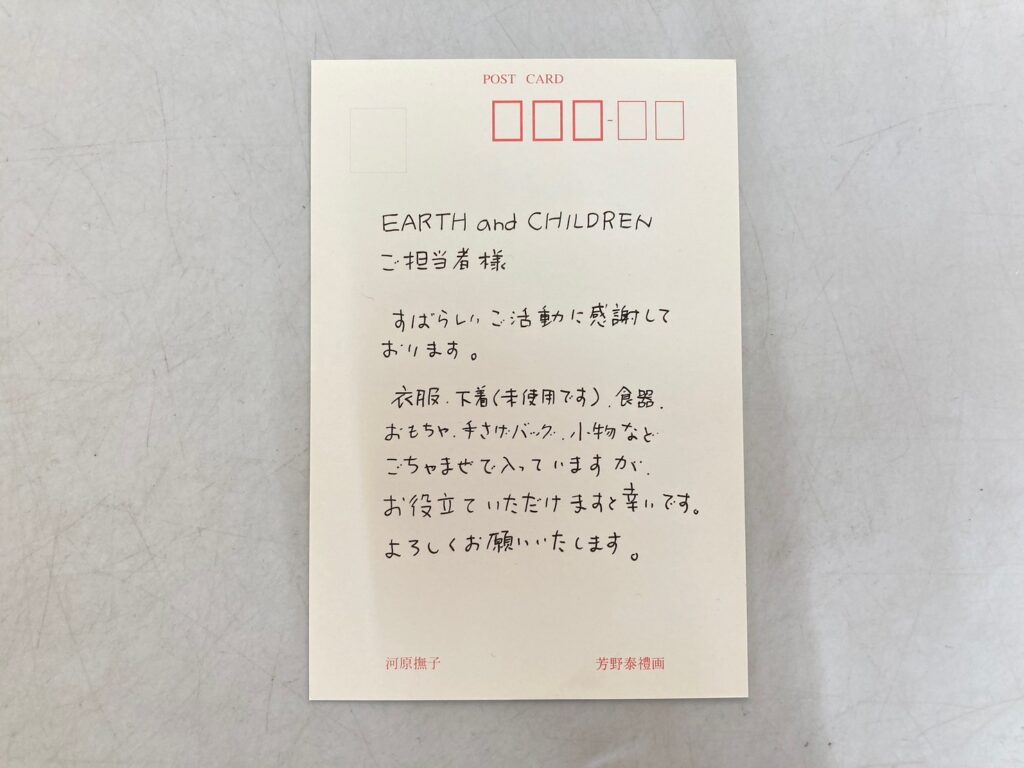 POST CARD
-
EARTH and CHILDREN
ご担当者様
すばらしいご活動に感謝して
おります。
衣服、下着(未使用です)、食器、
おもちゃ、手さげバッグ、小物など
ごちゃまぜで入っていますが、
お役立ていただけますと幸いです。
よろしくお願いいたします。
河原撫子 芳野泰禮画